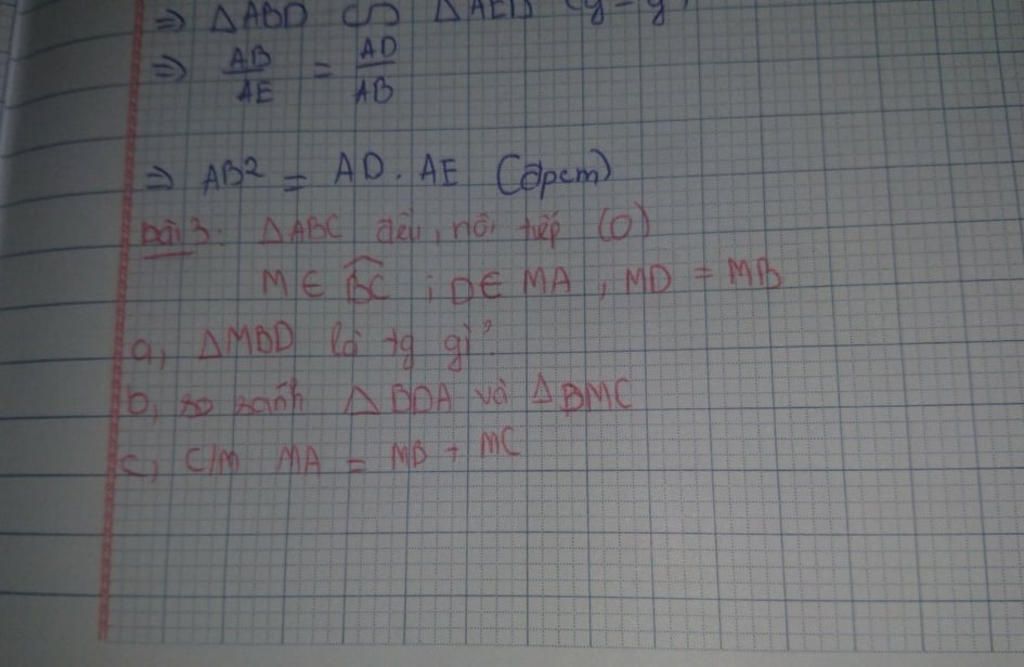 ⇒ ΔABD ∽ ΔAEB (g-g)
⇒ AB/AE = AD/AB
⇒ AB² = AD. AE (đpcm)
bài 3: ΔABC đều, nội tiếp (O)
M ∈ BC ; D ∈ MA, MD = MB
a, ΔMBD là tg gì?
b, so sánh ΔBDA và ΔBMC
c, C/M MA = MB + MC